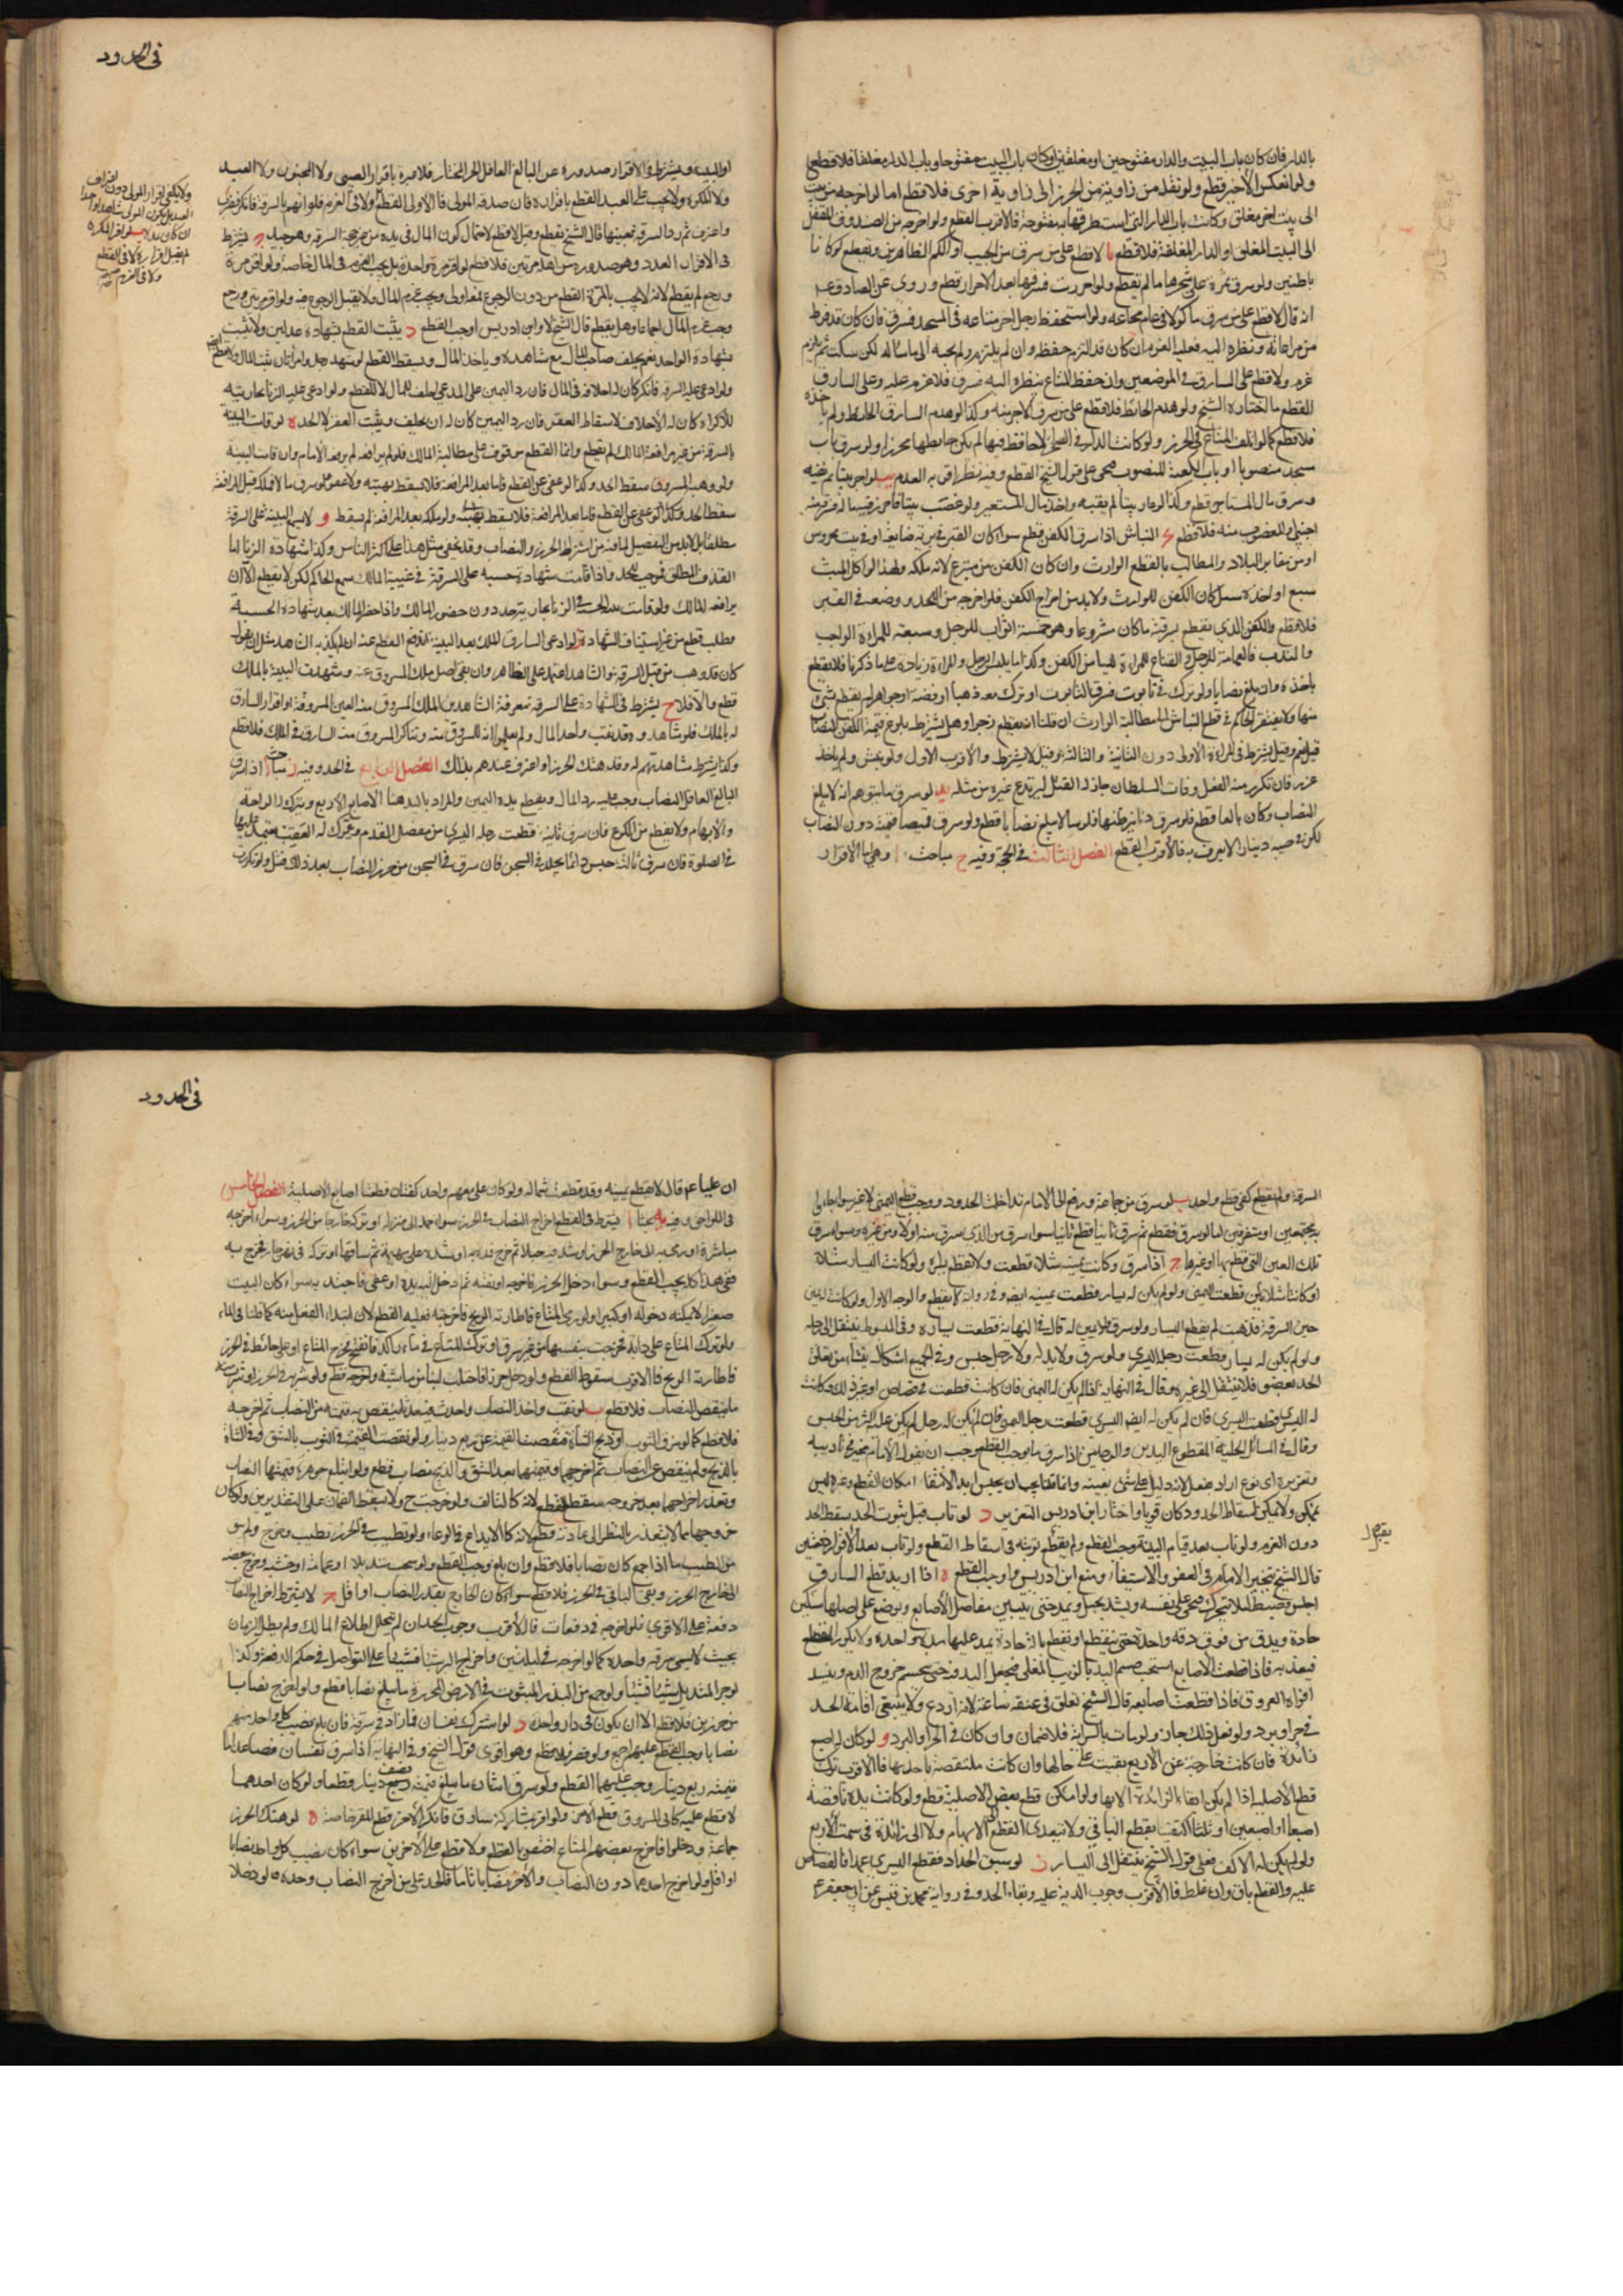 بالدار فان كان باب البيت والدار مفتوحين او مغلقين او كان باب البيت مفتوحا وباب الدار مغلقا فلا قطع
ولو انعكس الاخير قطع ولو نقل من زاوية من الحرز الى زاوية اخرى فلا قطع اما لو اخرجه من بيت
الى بيت اخر مغلق وكانت باب الدار التى استطرقها به مفتوحة فالاقرب القطع ولو اخرجه من الصندوق المقفل
الى البيت المغلق او الدار المغلقة فلا قطع يا لا قطع على من سرق من الجيب او الكم الظاهرين ويقطع لو كانا
باطنين ولو سرق ثمرة على شجرها ما لم يقطع ولو احرزت فسرقها بعد الاحراز قطع وروى عن الصادق ع
انه قال لا قطع على من سرق ماكولا فى عام مجاعة ولو استحفظ رجل اخر متاعه فى المسجد فسرق فان كان قد فرط
من مراعاته ونظره اليه فعليه الغرم ان كان قد التزم حفظه وان لم يلتزم ولم يجبه الى ما ساله لكن سكت لم يلزم
غرم ولا قطع على السارق فى الموضعين وان حفظ المتاع بنظره اليه فسرق فلا غرم عليه وعلى السارق
القطع ما اختاره الشيخ ولو هدم الحائط فلا قطع على من سرق لاجرينه وكذا لو هدم السارق الحائط ولم ياخذه
فلا قطع كما لو اتلف المتاع فى الحرز ولو كانت الدار فى الصحراء لا حافظ فيها لم يكن حايطها محرزا ولو سرق باب
مسجد منصوبا او باب الكعبة المنصوب عليها قول الشيخ القطع وفيه نظر اقربه العدم يب لو اجر بيتا ثم نقبه
وسرق مال المستاجر قطع وكذا لو اعار بيتا ثم نقبه واخذ مال المستعير ولو غصب بيتا فاحرز فيه ماله فسرق منه
اجنبى او المغصوب منه فلا قطع النباش اذا سرق الكفن قطع سواء كان القبر فى برية ضايعة او فى بيت محروس
او من مقابر البلاد والمطالب بالقطع الوارث وان كان الكفن من متبرع لانه ملكه ولهذا لو اكل الميت
سبع او اخذه سيل كان الكفن للوارث ولا بد من اخراج الكفن فلو اخرجه من اللحد ووضعه فى القبر
فلا قطع والكفن الذى يقطع بسرقته ما كان مشروعا وهو خمسة اثواب للرجل وسبعة للمراة الواجب
والندب فالعمامة للرجل والقناع للمراة ليسا من الكفن وكذا ما يلف الرجل والمراة زيادة على ما ذكرنا فلا يقطع
باخذه وان بلغ نصابا ولو ترك فى تابوت فسرق التابوت او ترك معه ذهبا او فضة او جواهر لم يقطع بشئ
منها ولا يفتقر الحاكم فى قطع النباش الى مطالبة الوارث ان قلنا انه يقطع زجرا وهل يشترط بلوغ قيمة الكفن النصاب
قيل نعم وقيل يشترط فى المرة الاولى دون الثانية والثالثة وقيل لا يشترط والاقرب الاول ولو نبش ولم ياخذ
عزر فان تكرر منه الفعل وفات السلطان جاز له القتل ليرتدع غيره من مثله يد لو سرق ما يتوهم انه لا يبلغ
النصاب وكان بالغا قطع فلو سرق دنانير ظنها فلوسا لا يبلغ نصابا قطع ولو سرق قميصا قيمته دون النصاب
لكن فى جيبه دينار لا يعرف به فالاقرب القطع الفصل الثالث فى الحجة وفيه ح مباحث ا وهى اما الاقرار
فى الحدود
او البينة ويشترط فى الاقرار صدوره عن البالغ العاقل الحر المختار فلا عبرة باقرار الصبى ولا المجنون ولا العبد
ولا المكره ولا يجب على العبد القطع باقراره فان صدقه المولى فالاولى القطع
واعترف ثم رد السرقة بعينها قال الشيخ يقطع وقيل لا قطع لاحتمال كون المال فى يده من غير جهة السرقة وهو جيد ج يشترط
فى الاقرار العدد وهو صدوره من اهله مرتين فلا قطع لو اقر مرة واحدة بل يجب الغرم فى المال خاصة ولو اقر مرة
ورجع لم يقطع لانه لا يجب بالمرة القطع من دون الرجوع فمعه اولى ويجب غرم المال ولا يقبل الرجوع فيه ولو اقر مرتين ورجع
وجب غرم المال اجماعا وهل يقطع قال الشيخ لا وابن ادريس اوجب القطع د يثبت القطع بشهادة عدلين ولا يثبت
بشهادة الواحد نعم يحلف صاحب المال مع شاهده وياخذ المال ويسقط القطع لو شهد رجل وامراتان ثبت المال ولا قطع ايضا
ولو ادعى عليه السرقة فانكر كان له احلافه فى المال فان رد اليمين على المدعى احلف للمال لا للقطع ولو ادعى عليه الزنا بجاريته
للاكراه كان له الاحلاف لاسقاط العقر فان رد اليمين كان له ان يحلف ويثبت العقر لا الحد ه لو قامت البينة
بالسرقة من غير مرافعة المالك لم يقطع وانما القطع موقوف على مطالبة المالك فلو لم يرافعه لم يرفعه الامام وان قامت البينة
ولو وهبه المسروق سقط الحد وكذا لو عفى عن القطع فاما بعد المرافعة فلا يسقط بهبته ولا عفو
سقط الحد وكذا لو عفى عن القطع فاما بعد المرافعة فلا يسقط بهبته ولو ملكه بعد المرافعة لم يسقط و لا تسمع البينة على السرقة
مطلقا بل لا بد من التفصيل لما فيه من اشتراط الحرز والنصاب وقد يخفى مثل هذا على اكثر الناس وكذا شهادة الزنا اما
القذف المطلق فيوجب الحد واذا قامت شهادة حسبة على السرقة فى غيبة المالك سمع الحاكم لكن لا يقطع الا ان
يرافعه المالك ولو قامت بينة الحسبة فى الزنا بجاريته حد دون حضور المالك واذا حضر المالك بعد شهادة الحسبة
وطلب قطع من غير استيناف الشهادة ز لو ادعى السارق الملك بعد البينة اندفع القطع عنه ان لم يكذبه الشاهد مثل ان يقول
كان قد وهب من قبل السرقة والشاهد اعتمد على الظاهر وان نفى اصل ملك المسروق منه وشهدت البينة بالملك
قطع والا فلا ح يشترط فى الشهادة على السرقة معرفة الشاهدين الملك للمسروق منه العين المسروقة او اقرار السارق
له بالملك فلو شاهدوه قد نقب واخذ المال ولم يعلموا انه للمسروق منه وتناكر المسروق منه السارق فى الملك فلا قطع
وكذا يشترط مشاهدتهم له وقد هتك الحرز او اعترف عندهم بذلك الفصل الرابع فى الحد وفيه ز مباحث ا اذا سرق
البالغ العاقل النصاب وجب عليه رد المال ويقطع يده اليمين والمراد باليد هنا الاصابع الاربع ويترك له الراحة
والابهام ولا يقطع من الكوع فان سرق ثانية قطعت رجله اليسرى من مفصل القدم ويترك له العقب يعتمد عليها
فى الصلوة فان سرق ثالثة حبس دائما يخلد فى السجن فان سرق فى السجن من حرز النصاب بعد ذلك قتل ولو تكررت
السرقة ولم يقطع كفى قطع واحد ب لو سرق من جماعة ورفع الى الامام تداخلت الحدود ووجب قطع اليمنى لا غير سواء جاؤا
به مجتمعين او متفرقين اما لو سرق فقطع ثم سرق ثانيا قطع ثانيا سواء سرق من الذى سرق منه اولا او من غيره وسواء سرق
تلك العين التى قطع بها او غيرها ج اذا سرق وكانت يمينه شلاء قطعت ولا يقطع يساره ولو كانت اليسار شلاء
او كانتا شلاوين قطعت اليمنى ولو لم يكن له يسار قطعت يمينه ايضا وفى رواية لا يقطع والوجه الاول ولو كانت له يمين
حين السرقة فذهبت لم يقطع اليسار ولو سرق ولا يمين له قال فى النهاية قطعت يساره وفى المبسوط ينتقل الى رجله
ولو لم يكن له يسار قطعت رجله اليسرى ولو سرق ولا يد له ولا رجل حبس وفى الجميع اشكال ينشا من تعلق
الحد بعضو فلا ينتقل الى غيره وقال فى النهاية اذا لم يكن له اليمنى فان كانت قطعت فى قصاص او غير ذلك وكانت
له اليسرى قطعت اليسرى فان لم يكن له ايضا اليسرى قطعت رجله اليمنى فان لم يكن له رجل لم يكن عليه اكثر من الحبس
وقال فى المسائل الحلبية المقطوع اليدين والرجلين اذا سرق ما يوجب القطع وجب ان نقول الامام مخير فى تاديبه
وتعزيره اى نوع اراد فعل لانه لا دليل على شئ بعينه
يمكن ولا يمكن اسقاط الحدود كان قويا واختار ابن ادريس التعزير د لو تاب قبل ثبوت الحد سقط الحد
دون الغرم ولو تاب بعد قيام البينة وجب القطع ولم يقطع توبته فى اسقاط القطع ولو تاب بعد الاقرار دفعتين
قال الشيخ يتخير الامام فى العفو والاستيفاء ومنع ابن ادريس واوجب القطع ه اذا اريد قطع السارق
اجلس وضبط لئلا يتحرك فيجنى على نفسه ويشد بحبل ويمد حتى يتبين مفاصل الاصابع ويوضع على اصلها سكين
حادة ويدق من فوق دقة واحدة حتى ينقطع او يقطع بالة حادة يمد عليها مدة واحدة ولا يكرر القطع
فيعذبه فاذا قطعت الاصابع استحب حسم اليد بالزيت المغلى فيجعل اليد فيه حتى ينحسم خروج الدم وينسد
افواه العروق فاذا قطعت اصابعه قال الشيخ تعلق فى عنقه ساعة لانه اردع ولا ينبغى اقامة الحد
فى حر او برد ولو فعل ذلك جاز ولو مات بالسراية فلا ضمان وان كان فى الحر او البرد و لو كان له اصبع
زائدة فان كانت خارجة عن الاربع بقيت على حالها وان كانت ملتصقة باحدها فالاقرب ترك
قطع الاصلية اذا لم يكن ابقاء الزائدة الا بها ولو امكن قطع بعض الاصلية قطع ولو كانت يده ناقصة
اصبعا او اصبعين او ثلثا اكتفى بقطع الباقى ولا يتعدى القطع الى الابهام ولا الى زائدة فى سمت الاربع
ولو لم يكن له الا كف فعلى قول الشيخ ينتقل الى اليسار ز لو سبق الحداد فقطع اليسرى عمدا فالقصاص
عليه والقطع باق وان غلط فالاقرب وجوب الدية عليه وبقاء الحد وفى رواية محمد بن قيس عن ابى جعفر ع
فى الحدود
ان عليا ع قال لا يقطع يمينه وقد قطعت شماله ولو كان على معصم واحد كفتان قطعنا اصابع الاصلية الفصل الخامس
فى اللواحق وفيه بحثا ا يشترط فى القطع اخراج النصاب من الحرز سواء حمله الى منزله او تركه خارجا من الحرز وسواء اخرجه
مباشرة او رمى به الى خارج الحرز او شد فيه حبلا ثم خرج فمده به او شده على بهيمة ثم ساقها او تركه فى نهر جار فخرج به
ففى هذا كله يجب القطع وسواء دخل الحرز فاخرجه او نقبه ثم ادخل اليه يده او عصى فاجتذبه سواء كان البيت
صغيرا لا يمكنه دخوله او كبيرا ولو رمى المتاع فاطارته الريح فاخرجته فعليه القطع لان ابتداء الفعل منه كما قلنا فى الماء
ولو ترك المتاع على دابة فخرجت بنفسها من غير سوق او ترك المتاع فى ماء راكد فانفتح فخرج المتاع او على حائط فى الحرز
فاطارته الريح فالاقرب سقوط القطع ولو دخل حرزا فاحتلب لبنا من ماشية واخرجه قطع ولو شربه فى الحرز او شرب منه
ما ينقص النصاب فلا قطع ب لو نقب واخذ النصاب واحدث فيه حدثا ينقص به قيمته من النصاب ثم اخرجه
فلا قطع كما لو خرق الثوب او ذبح الشاة فنقصت القيمة عن ربع دينار ولو نقصت القيمة فى الثوب بالشق وفى الشاة
بالذبح ولم ينقص عن النصاب ثم اخرجهما وقيمتهما بعد الشق والذبح نصاب قطع ولو ابتلع جوهرة قيمتها النصاب
وتعذر اخراجها بعد خروجه سقط القطع لانه كالتالف ولو خرجت ح ولا يسقط الضمان على التقديرين ولو كان
خروجها مما لا يتعذر بالنظر الى عادته قطع لانه كالايداع فى الوعاء ولو تطيب فى الحرز بطيب وخرج ولم يبق
من الطيب ما اذا جمع كان نصابا فلا قطع وان بلغ وجب القطع ولو سحب منديلا او عمامة او خشبة وخرج بعضه
الى خارج الحرز وبقى الباقى فى الحرز فلا قطع سواء كان الخارج بقدر النصاب او اقل ج لا يشترط اخراج النصاب
دفعة على الاقوى فلو اخرجه فى دفعات فالاقرب وجوب الحد ان لم يتخلل اطلاع المالك ولم يطل الزمان
بحيث لا يسمى سرقة واحدة كما لو اخرجه فى ليلتين واخراج البر شيئا فشيئا على التواصل فى حكم الدفعة وكذا
لو جر المنديل شيئا فشيئا ولو جمع من البذر المبثوث فى الارض المحرزة ما يبلغ نصابا قطع ولو اخرج نصابا
من حرزين فلا قطع الا ان يكون فى دار واحدة د لو اشترك نفسان فما زاد فى سرقة فان بلغ نصيب كل واحد منهم
نصابا وجب القطع عليهم اجمع ولو قصر فلا قطع وهو اقوى قولى الشيخ وفى النهاية اذا سرق نفسان فصاعدا ما
قيمته ربع دينار وجب عليهما القطع ولو سرق اثنان ما يبلغ قيمته نصف دينار قطعا ولو كان احدهما
لا قطع عليه كابى المسروق قطع الاخر ولو اقر بمشاركة سارق فانكر الاخر قطع المقر خاصة ه لو هتك الحرز
جماعة ودخلوا فاخرج بعضهم المتاع اختص بالقطع ولا قطع على الاخرين سواء كان نصيب كل واحد نصابا
او اقل ولو اخرج احدهما دون النصاب والاخر نصابا تاما فالحد على من اخرج النصاب وحده و لو دخلا